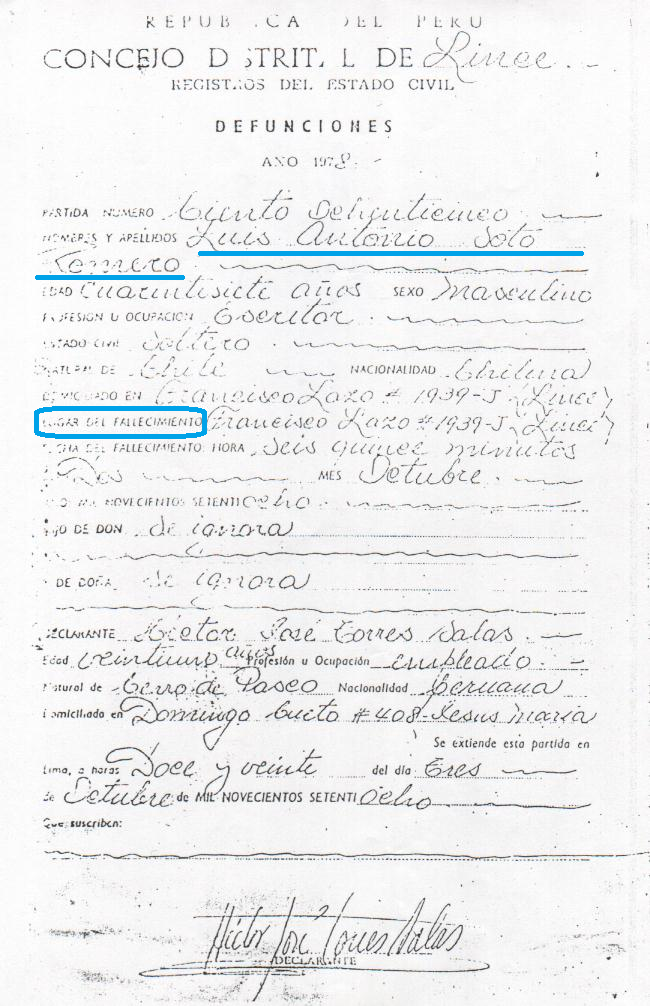 REPUBLICA DEL PERU
CONCEJO DISTRITAL DE Lince.-
REGISTROS DEL ESTADO CIVIL
DEFUNCIONES
AÑO 1978.-
PARTIDA NUMERO Ciento Setenticinco
NOMBRES Y APELLIDOS Luis Antonio Soto
Romero
EDAD Cuarentisiete años SEXO Masculino
PROFESION U OCUPACION Escritor.
ESTADO CIVIL Soltero
NATURAL DE Chile NACIONALIDAD Chilena
DOMICILIADO EN Francisco Lazo # 1939-J (Lince)
LUGAR DEL FALLECIMIENTO Francisco Lazo #1939-J (Lince)
FECHA DEL FALLECIMIENTO: HORA Seis quince minutos
Dos MES Octubre.
MIL NOVECIENTOS SETENTI ocho
HIJO DE DON se ignora
Y DE DOÑA se ignora
DECLARANTE Héctor José Torres Salas.
Edad veintiuno años Profesión u Ocupación empleado.-
Natural de Cerro de Pasco Nacionalidad Peruana
Domiciliado en Domingo Cueto #408-Jesus Maria
Se extiende esta partida en
Lima, a horas Doce y veinte del día Tres
de Octubre de MIL NOVECIENTOS SETENTI Ocho
Que suscriben:
Héctor José Torres Salas
DECLARANTE